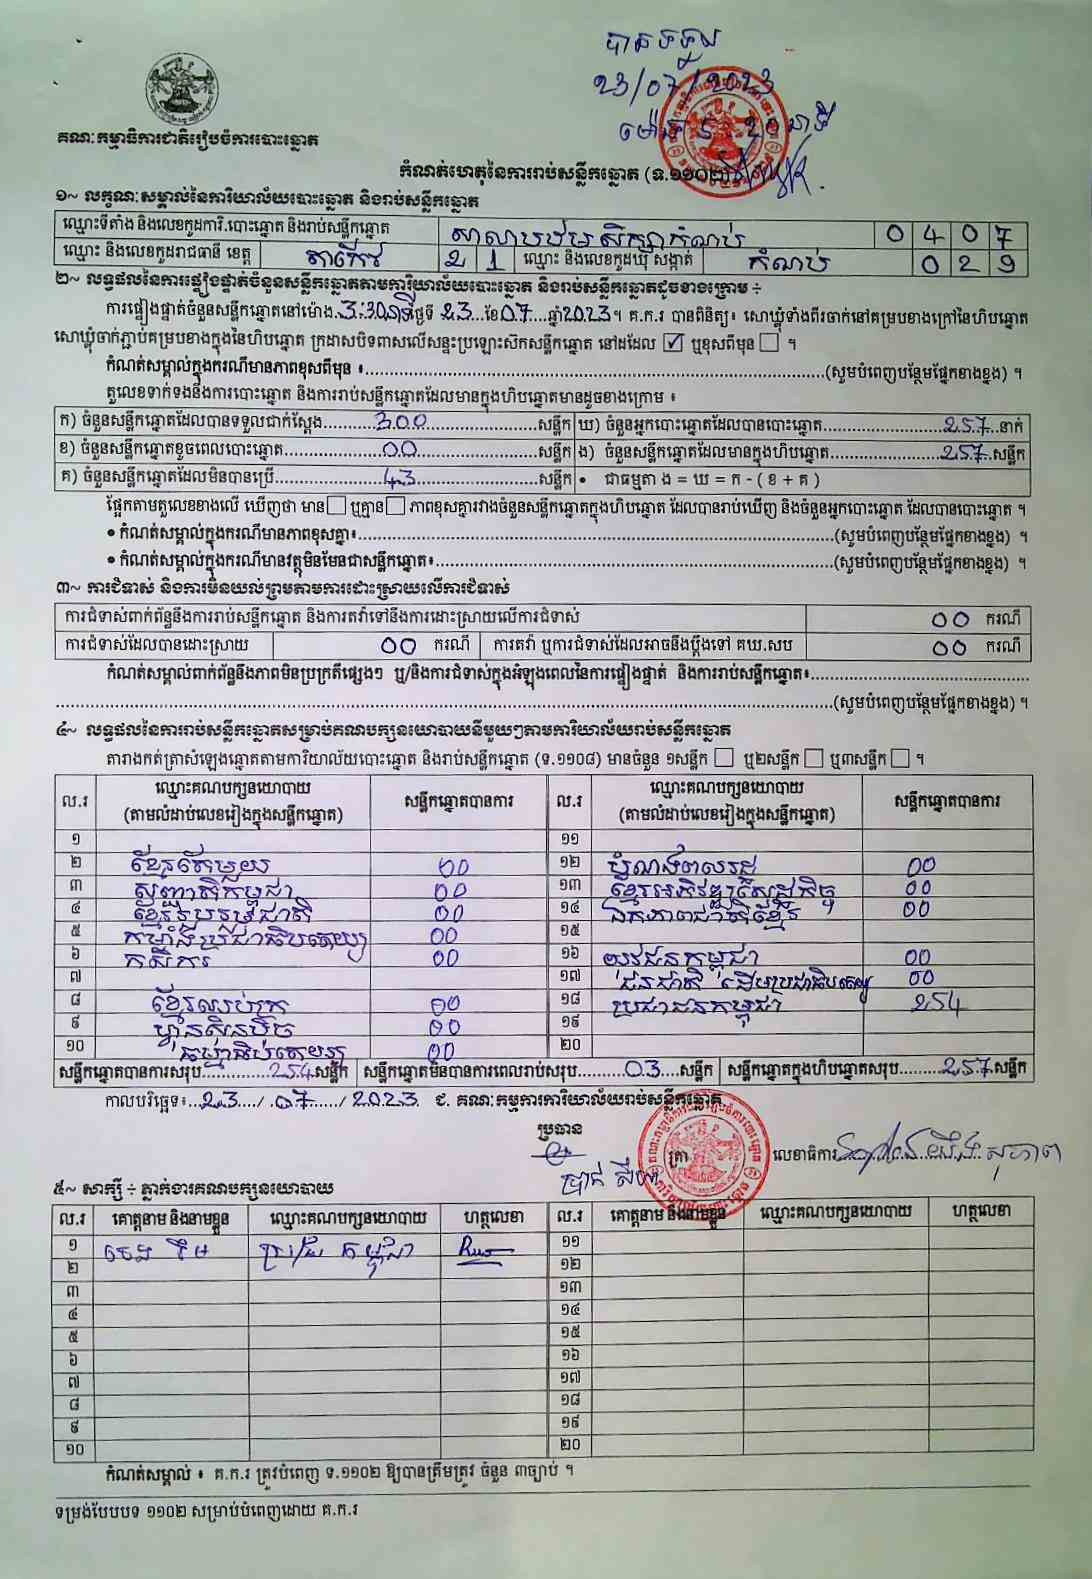 បានទទួល
23/07/2023
ម៉ោង 5:20 នាទី
គណៈកម្មាធិការជាតិរៀបចំការបោះឆ្នោត
កំណត់ហេតុនៃការរាប់សន្លឹកឆ្នោត (ទ.១១០២)
១~ លក្ខណៈសម្គាល់នៃការិយាល័យបោះឆ្នោត និងរាប់សន្លឹកឆ្នោត
ឈ្មោះទីតាំង និងលេខកូដការិ.បោះឆ្នោត និងរាប់សន្លឹកឆ្នោត សាលាបឋមសិក្សាកំណប់ 0407
ឈ្មោះ និងលេខកូដរាជធានី ខេត្ត តាកែវ 21 ឈ្មោះ និងលេខកូដឃុំ សង្កាត់ កំណប់ 029
២~ លទ្ធផលនៃការផ្ទៀងផ្ទាត់ចំនួនសន្លឹកឆ្នោតតាមការិយាល័យបោះឆ្នោត និងរាប់សន្លឹកឆ្នោតដូចខាងក្រោម ÷
ការផ្ទៀងផ្ទាត់ចំនួនសន្លឹកឆ្នោតនៅម៉ោង 3:30នាទី ថ្ងៃទី 23 ខែ 07 ឆ្នាំ 2023។ គ.ក.រ បានពិនិត្យ៖ សោឃ្លុំទាំងពីរចាក់នៅគម្របខាងក្រៅនៃហិបឆ្នោត
សោឃ្លុំចាក់ភ្ជាប់គម្របខាងក្នុងនៃហិបឆ្នោត ក្រដាសបិទពាសលើសន្ទះប្រឡោះស៊កសន្លឹកឆ្នោត នៅដដែល ☑ ឬខុសពីមុន ☐ ។
កំណត់សម្គាល់ក្នុងករណីមានភាពខុសពីមុន ៖ (សូមបំពេញបន្ថែមផ្នែកខាងខ្នង) ។
តួលេខទាក់ទងនឹងការបោះឆ្នោត និងការរាប់សន្លឹកឆ្នោតដែលមានក្នុងហិបឆ្នោតមានដូចខាងក្រោម ៖
ក) ចំនួនសន្លឹកឆ្នោតដែលបានទទួលជាក់ស្តែង 300 សន្លឹក ឃ) ចំនួនអ្នកបោះឆ្នោតដែលបានបោះឆ្នោត 257 នាក់
ខ) ចំនួនសន្លឹកឆ្នោតខូចពេលបោះឆ្នោត 00 សន្លឹក ង) ចំនួនសន្លឹកឆ្នោតដែលមានក្នុងហិបឆ្នោត 257 សន្លឹក
គ) ចំនួនសន្លឹកឆ្នោតដែលមិនបានប្រើ 43 សន្លឹក • ជាធម្មតា ង = ឃ = ក - ( ខ + គ )
ផ្អែកតាមតួលេខខាងលើ ឃើញថា មាន ☐ ឬគ្មាន ☐ ភាពខុសគ្នារវាងចំនួនសន្លឹកឆ្នោតក្នុងហិបឆ្នោត ដែលបានរាប់ឃើញ និងចំនួនអ្នកបោះឆ្នោត ដែលបានបោះឆ្នោត ។
• កំណត់សម្គាល់ក្នុងករណីមានភាពខុសគ្នា៖ (សូមបំពេញបន្ថែមផ្នែកខាងខ្នង) ។
• កំណត់សម្គាល់ក្នុងករណីមានវត្ថុមិនមែនជាសន្លឹកឆ្នោត៖ (សូមបំពេញបន្ថែមផ្នែកខាងខ្នង) ។
៣~ ការជំទាស់ និងការមិនយល់ព្រមតាមការដោះស្រាយលើការជំទាស់
ការជំទាស់ពាក់ព័ន្ធនឹងការរាប់សន្លឹកឆ្នោត និងការតវ៉ាទៅនឹងការដោះស្រាយលើការជំទាស់ 00 ករណី
ការជំទាស់ដែលបានដោះស្រាយ 00 ករណី ការតវ៉ា ឬការជំទាស់ដែលអាចនឹងប្ដឹងទៅ គឃ.សប 00 ករណី
កំណត់សម្គាល់ពាក់ព័ន្ធនឹងភាពមិនប្រក្រតីផ្សេងៗ ឬ/និងការជំទាស់ក្នុងអំឡុងពេលនៃការផ្ទៀងផ្ទាត់ និងការរាប់សន្លឹកឆ្នោត៖
(សូមបំពេញបន្ថែមផ្នែកខាងខ្នង) ។
៤~ លទ្ធផលនៃការរាប់សន្លឹកឆ្នោតសម្រាប់គណបក្សនយោបាយនីមួយៗតាមការិយាល័យរាប់សន្លឹកឆ្នោត
តារាងកត់ត្រាសំឡេងឆ្នោតតាមការិយាល័យបោះឆ្នោត និងរាប់សន្លឹកឆ្នោត (ទ.១១០៨) មានចំនួន ១សន្លឹក ☐ ឬ២សន្លឹក ☐ ឬ៣សន្លឹក ☐ ។
ល.រ ឈ្មោះគណបក្សនយោបាយ (តាមលំដាប់លេខរៀងក្នុងសន្លឹកឆ្នោត) សន្លឹកឆ្នោតបានការ ល.រ ឈ្មោះគណបក្សនយោបាយ (តាមលំដាប់លេខរៀងក្នុងសន្លឹកឆ្នោត) សន្លឹកឆ្នោតបានការ
១ ១១
២ ខ្មែរតែមួយ 00 ១២ បំណងពលរដ្ឋ 00
៣ សញ្ជាតិកម្ពុជា 00 ១៣ ខ្មែរអភិវឌ្ឍន៍សេដ្ឋកិច្ច 00
៤ ខ្មែររួបរួមជាតិ 00 ១៤ ឯកភាពជាតិខ្មែរ 00
៥ កម្លាំងប្រជាធិបតេយ្យ 00 ១៥
៦ កសិករ 00 ១៦ យុវជនកម្ពុជា 00
៧ ១៧ ជនជាតិដើមប្រជាធិបតេយ្យ 00
៨ ខ្មែរឈប់ក្រ 00 ១៨ ប្រជាជនកម្ពុជា 254
៩ ហ្វ៊ុនស៊ិនប៉ិច 00 ១៩
១០ ធម្មាធិបតេយ្យ 00 ២០
សន្លឹកឆ្នោតបានការសរុប 254 សន្លឹក សន្លឹកឆ្នោតមិនបានការពេលរាប់សរុប 03 សន្លឹក សន្លឹកឆ្នោតក្នុងហិបឆ្នោតសរុប 257 សន្លឹក
កាលបរិច្ឆេទ៖ 23 / 07 / 2023 ជ. គណៈកម្មការការិយាល័យរាប់សន្លឹកឆ្នោត
ប្រធាន
ត្រា លេខាធិការ
៥~ សាក្សី ÷ ភ្នាក់ងារគណបក្សនយោបាយ
ល.រ គោត្តនាម និងនាមខ្លួន ឈ្មោះគណបក្សនយោបាយ ហត្ថលេខា ល.រ គោត្តនាម និងនាមខ្លួន ឈ្មោះគណបក្សនយោបាយ ហត្ថលេខា
១ ប្រជាជនកម្ពុជា ១១
២ ១២
៣ ១៣
៤ ១៤
៥ ១៥
៦ ១៦
៧ ១៧
៨ ១៨
៩ ១៩
១០ ២០
កំណត់សម្គាល់ ៖ គ.ក.រ ត្រូវបំពេញ ទ.១១០២ ឱ្យបានត្រឹមត្រូវ ចំនួន ៣ច្បាប់ ។
ទម្រង់បែបបទ ១១០២ សម្រាប់បំពេញដោយ គ.ក.រ